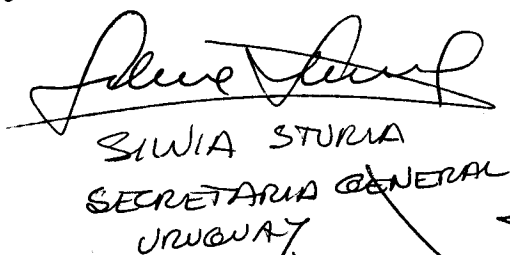 SILVIA STURLA
SECRETARIA GENERAL
URUGUAY